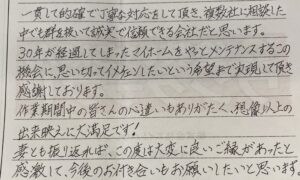 一貫して的確で丁寧な対応をして頂き、複数社に相談した
中でも群を抜いて誠実で信頼できる会社だと思います。
30年が経過してしまったマイホームをやっとメンテナンスするこの
機会に、思い切ってイメチェンしたいという希望まで実現して頂き
感謝しております。
作業期間中の皆さんの心遣いもありがたく、想像以上の
出来映えに大満足です!
妻とも振り返れば、この度は大変に良いご縁があったと
感激して、今後のお付き合いもお願いしたいと思います。